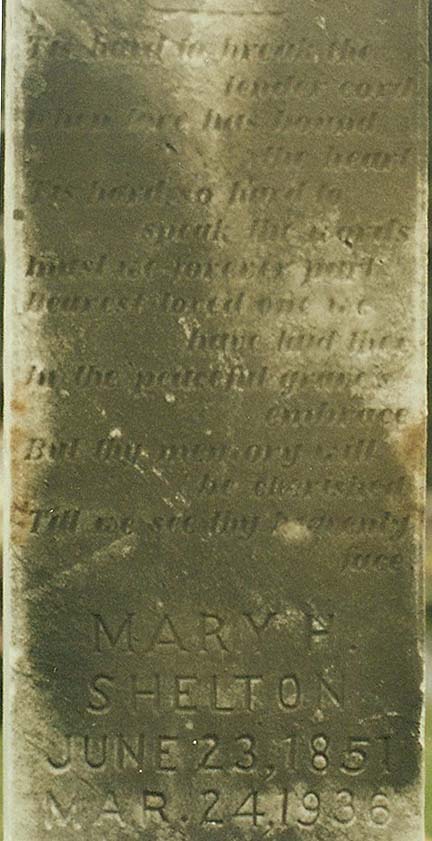 Tis hard to break the
tender cord
When love has bound
the heart
Tis hard so hard to
speak the words
Must we forever part
Dearest loved one we
have laid thee
In the peaceful grave's
embrace
But thy memory will
be cherished
Till we see thy heavenly
face.
MARY H.
SHELTON
JUNE 23, 1851
MAR. 24, 1936